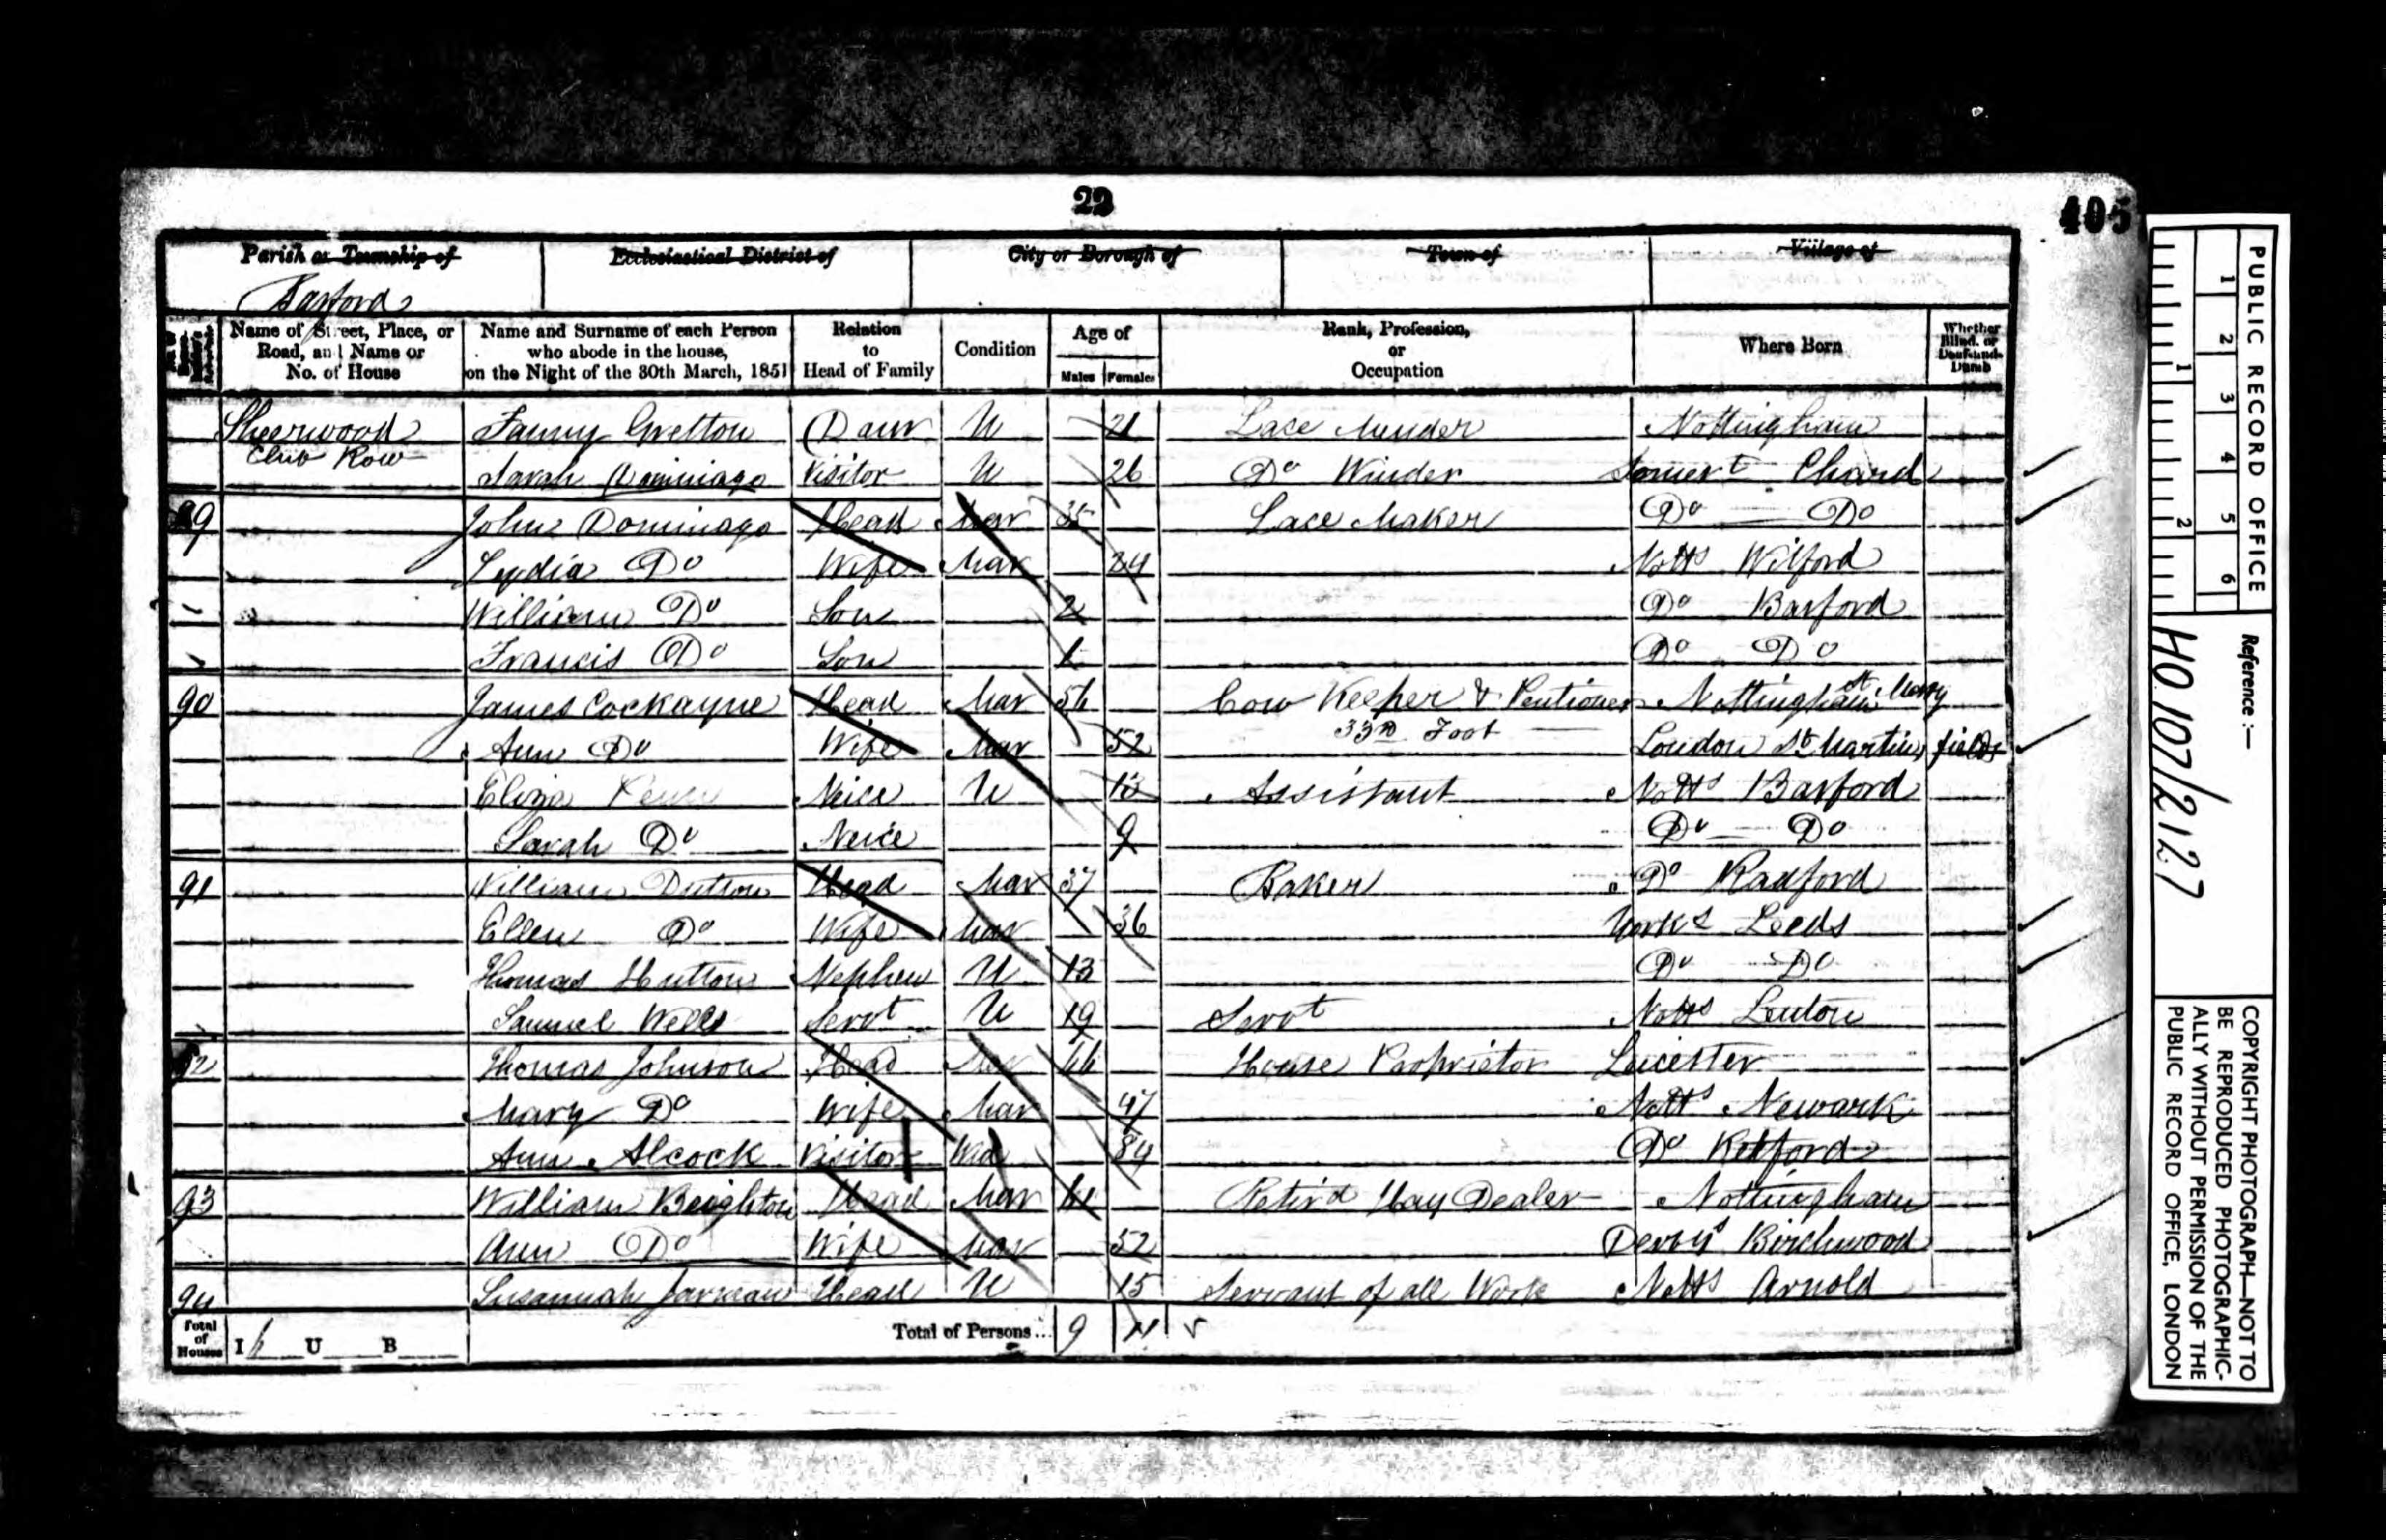 22
405
Parish or Township of
Ecclesiastical District of
City or Borough of
Town of
Village of
Basford
Name of Street, Place, or Road, and Name or No. of House
Name and Surname of each Person who abode in the house, on the Night of the 30th March, 1851
Relation to Head of Family
Condition
Age of
Males
Females
Rank, Profession, or Occupation
Where Born
Whether Blind, or Deaf-and-Dumb
Sherwood Fanny Gretton Daur U 21 Lace Mender Nottingham
Club Row
Sarah Dominago Visitor U 26 Do Winder Somert Chard
89 John Dominago Head Mar 35 Lace Maker Do Do
Lydia Do Wife Mar 24 Notts Wilford
William Do Son 2 Do Basford
Francis Do Son 1 Do Do
90 James Cockayne Head Mar 56 Cow Keeper & Pentioner Nottingham St Mary
33rd Foot
Ann Do Wife Mar 52 London St Martins fields
Eliza Neice U 13 Assistant Notts Basford
Sarah Do Neice 9 Do Do
91 William Dutton Head Mar 37 Baker Do Radford
Ellen Do Wife Mar 36 Yorks Leeds
Thomas Hutton Nephew U 13 Do Do
Samuel Wells Servt U 19 Servt Notts Lenton
92 Thomas Johnson Head Mar 66 House Proprietor Leicester
Mary Do Wife Mar 47 Notts Newark
Ann Alcock Visitor Wid 84 Do Retford
93 William Beighton Head Mar 61 Retird Hay Dealer Nottingham
Ann Do Wife Mar 52 Derbys Birchwood
94 Susannah Jarman Head U 15 Servant of all Work Notts Arnold
Total of Houses I 6 U B Total of Persons... 9 11
PUBLIC RECORD OFFICE
1 2 3 4 5 6
1 2
Reference :—
HO 107/2127
COPYRIGHT PHOTOGRAPH—NOT TO
BE REPRODUCED PHOTOGRAPHIC-
ALLY WITHOUT PERMISSION OF THE
PUBLIC RECORD OFFICE, LONDON